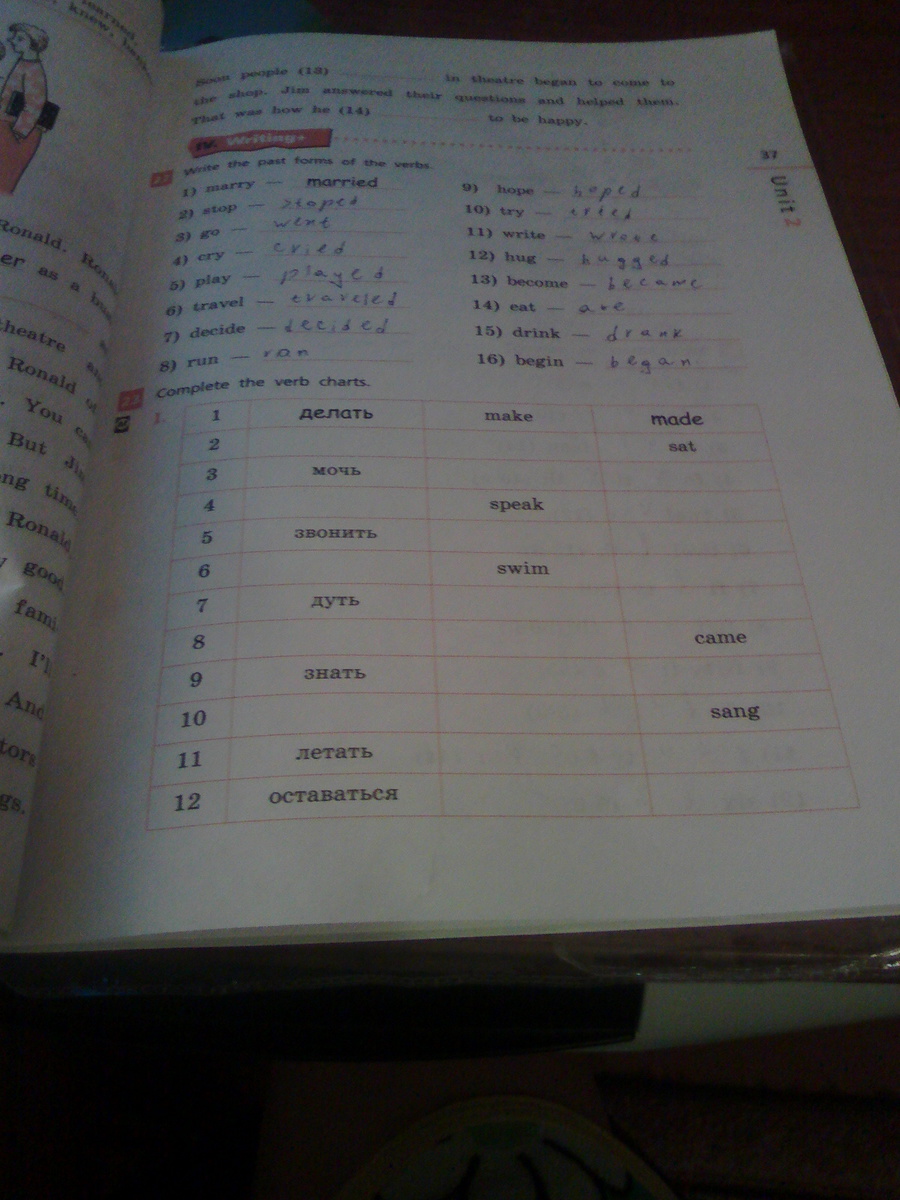 learned
knew,
Soon people (13) in theatre began to come to
the shop. Jim answered their questions and helped them.
That was how he (14) to be happy.
IV. Writing+
37
Unit 2
22 Write the past forms of the verbs.
1) marry — married
2) stop — stoped
3) go — went
4) cry — cried
5) play — played
6) travel — traveled
7) decide — decided
8) run — ran
9) hope — hoped
10) try — tried
11) write — wrote
12) hug — hugged
13) become — became
14) eat — ate
15) drink — drank
16) begin — began
23 Complete the verb charts.
1.
1 делать make made
2 sat
3 мочь
4 speak
5 звонить
6 swim
7 дуть
8 came
9 знать
10 sang
11 летать
12 оставаться
Ronald.
er as a
theatre
Ronald
You
But
time
Ronald
good
I'll
And
tors
gs.